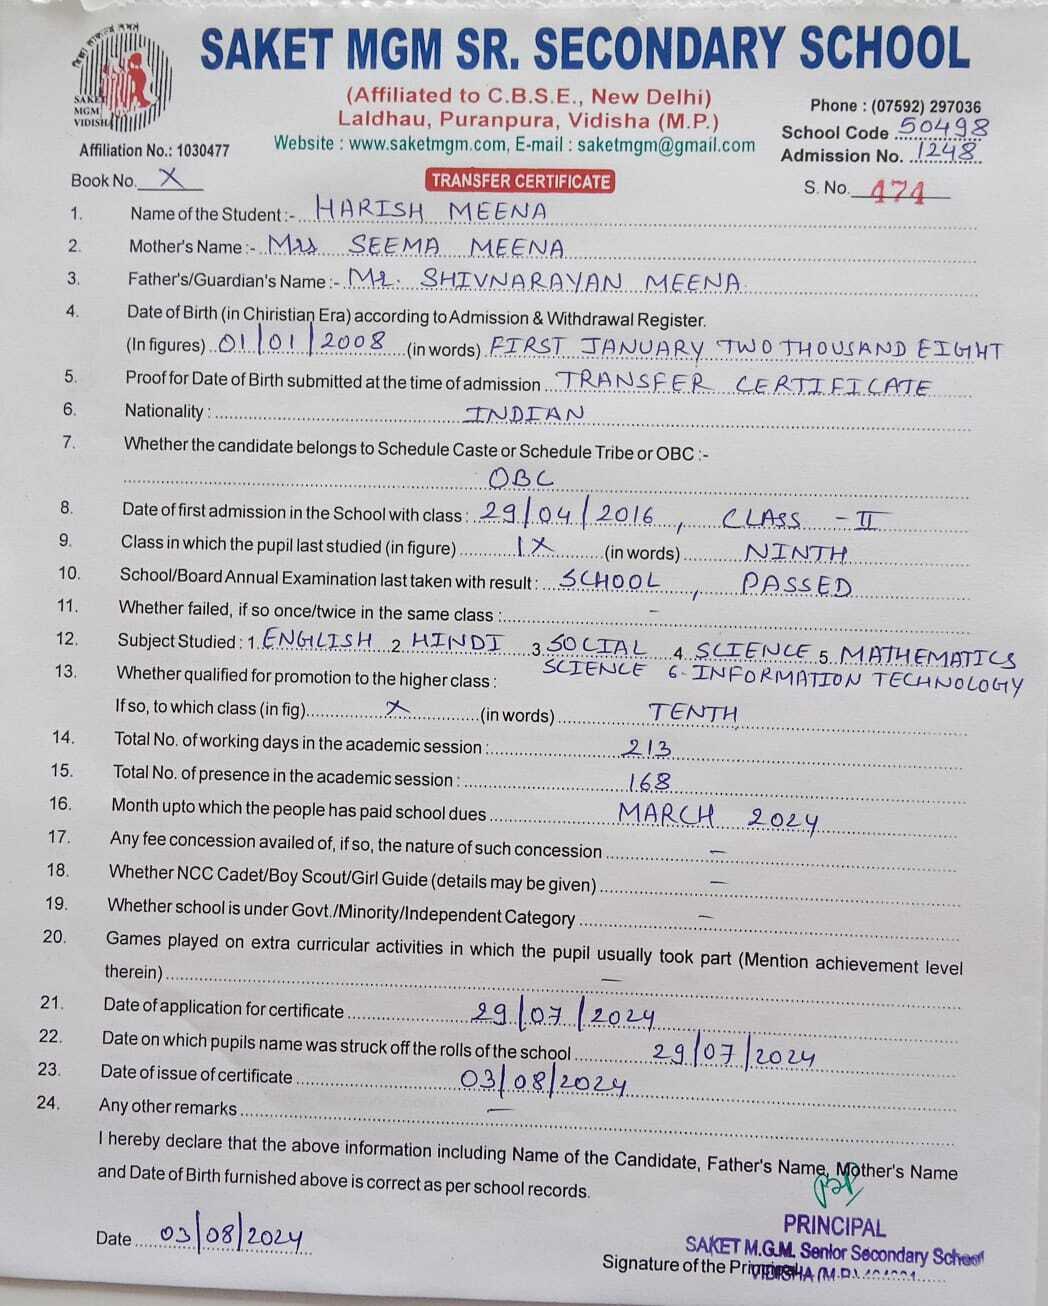 SAKET MGM SR. SECONDARY SCHOOL
SAKET
MGM
VIDISHA
(Affiliated to C.B.S.E., New Delhi)
Laldhau, Puranpura, Vidisha (M.P.)
Website : www.saketmgm.com, E-mail : saketmgm@gmail.com
Phone : (07592) 297036
School Code 50498
Admission No. 1248
Affiliation No.: 1030477
Book No. X
TRANSFER CERTIFICATE
S. No. 474
1. Name of the Student :- HARISH MEENA
2. Mother's Name :- Mrs SEEMA MEENA
3. Father's/Guardian's Name :- Mr. SHIVNARAYAN MEENA
4. Date of Birth (in Chiristian Era) according to Admission & Withdrawal Register.
(In figures) 01/01/2008 (in words) FIRST JANUARY TWO THOUSAND EIGHT
5. Proof for Date of Birth submitted at the time of admission TRANSFER CERTIFICATE
6. Nationality : INDIAN
7. Whether the candidate belongs to Schedule Caste or Schedule Tribe or OBC :-
OBC
8. Date of first admission in the School with class : 29/04/2016, CLASS - II
9. Class in which the pupil last studied (in figure) IX (in words) NINTH
10. School/Board Annual Examination last taken with result : SCHOOL, PASSED
11. Whether failed, if so once/twice in the same class : –
12. Subject Studied : 1. ENGLISH 2. HINDI 3. SOCIAL 4. SCIENCE 5. MATHEMATICS
SCIENCE 6- INFORMATION TECHNOLOGY
13. Whether qualified for promotion to the higher class :
If so, to which class (in fig) X (in words) TENTH
14. Total No. of working days in the academic session : 213
15. Total No. of presence in the academic session : 168
16. Month upto which the people has paid school dues MARCH 2024
17. Any fee concession availed of, if so, the nature of such concession –
18. Whether NCC Cadet/Boy Scout/Girl Guide (details may be given) –
19. Whether school is under Govt./Minority/Independent Category –
20. Games played on extra curricular activities in which the pupil usually took part (Mention achievement level
therein) –
21. Date of application for certificate 29/07/2024
22. Date on which pupils name was struck off the rolls of the school 29/07/2024
23. Date of issue of certificate 03/08/2024
24. Any other remarks –
I hereby declare that the above information including Name of the Candidate, Father's Name, Mother's Name
and Date of Birth furnished above is correct as per school records.
PRINCIPAL
SAKET M.G.M. Senior Secondary School
VIDISHA (M.P.)
Date 03/08/2024
Signature of the Principal